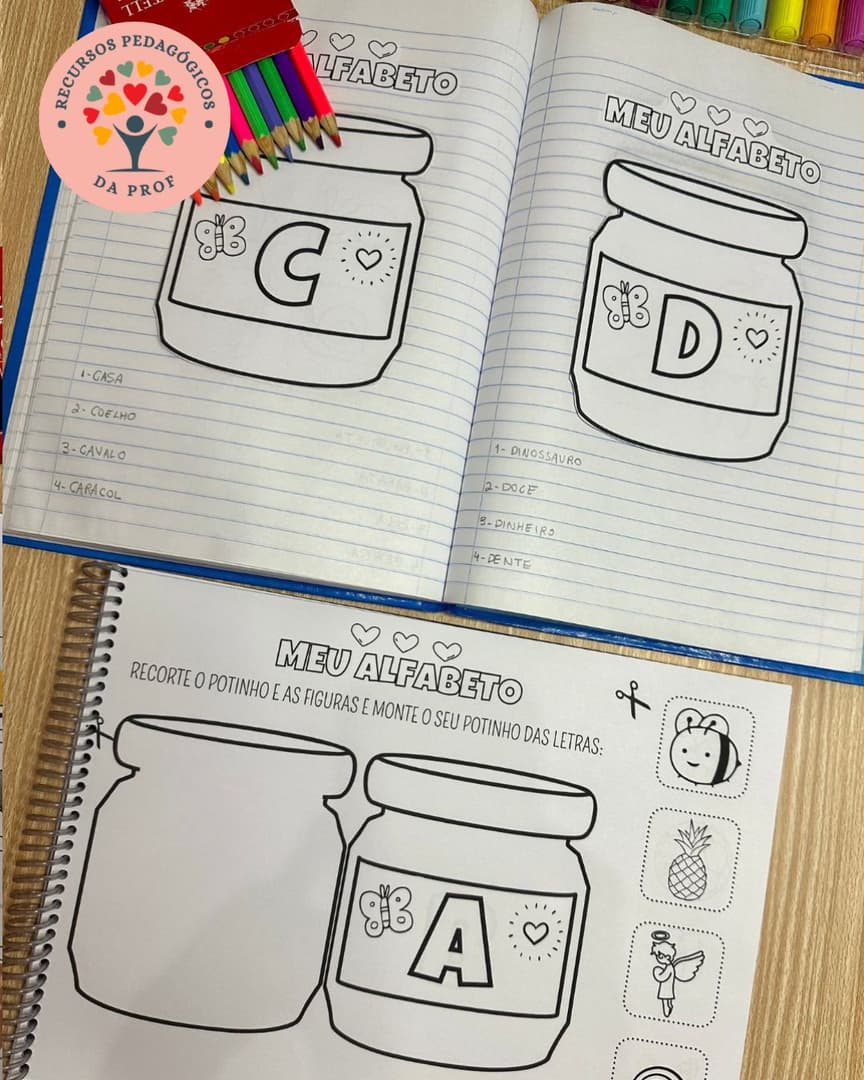 RECURSOS PEDAGÓGICOS
DA PROF
TELL
ALFABETO
C
1-CASA
2- COELHO
3-CAVALO
4-CARACOL
MEU ALFABETO
D
1- DINOSSAURO
2-DOCE
3-DINHEIRO
4-DENTE
MEU ALFABETO
RECORTE O POTINHO E AS FIGURAS E MONTE O SEU POTINHO DAS LETRAS:
A